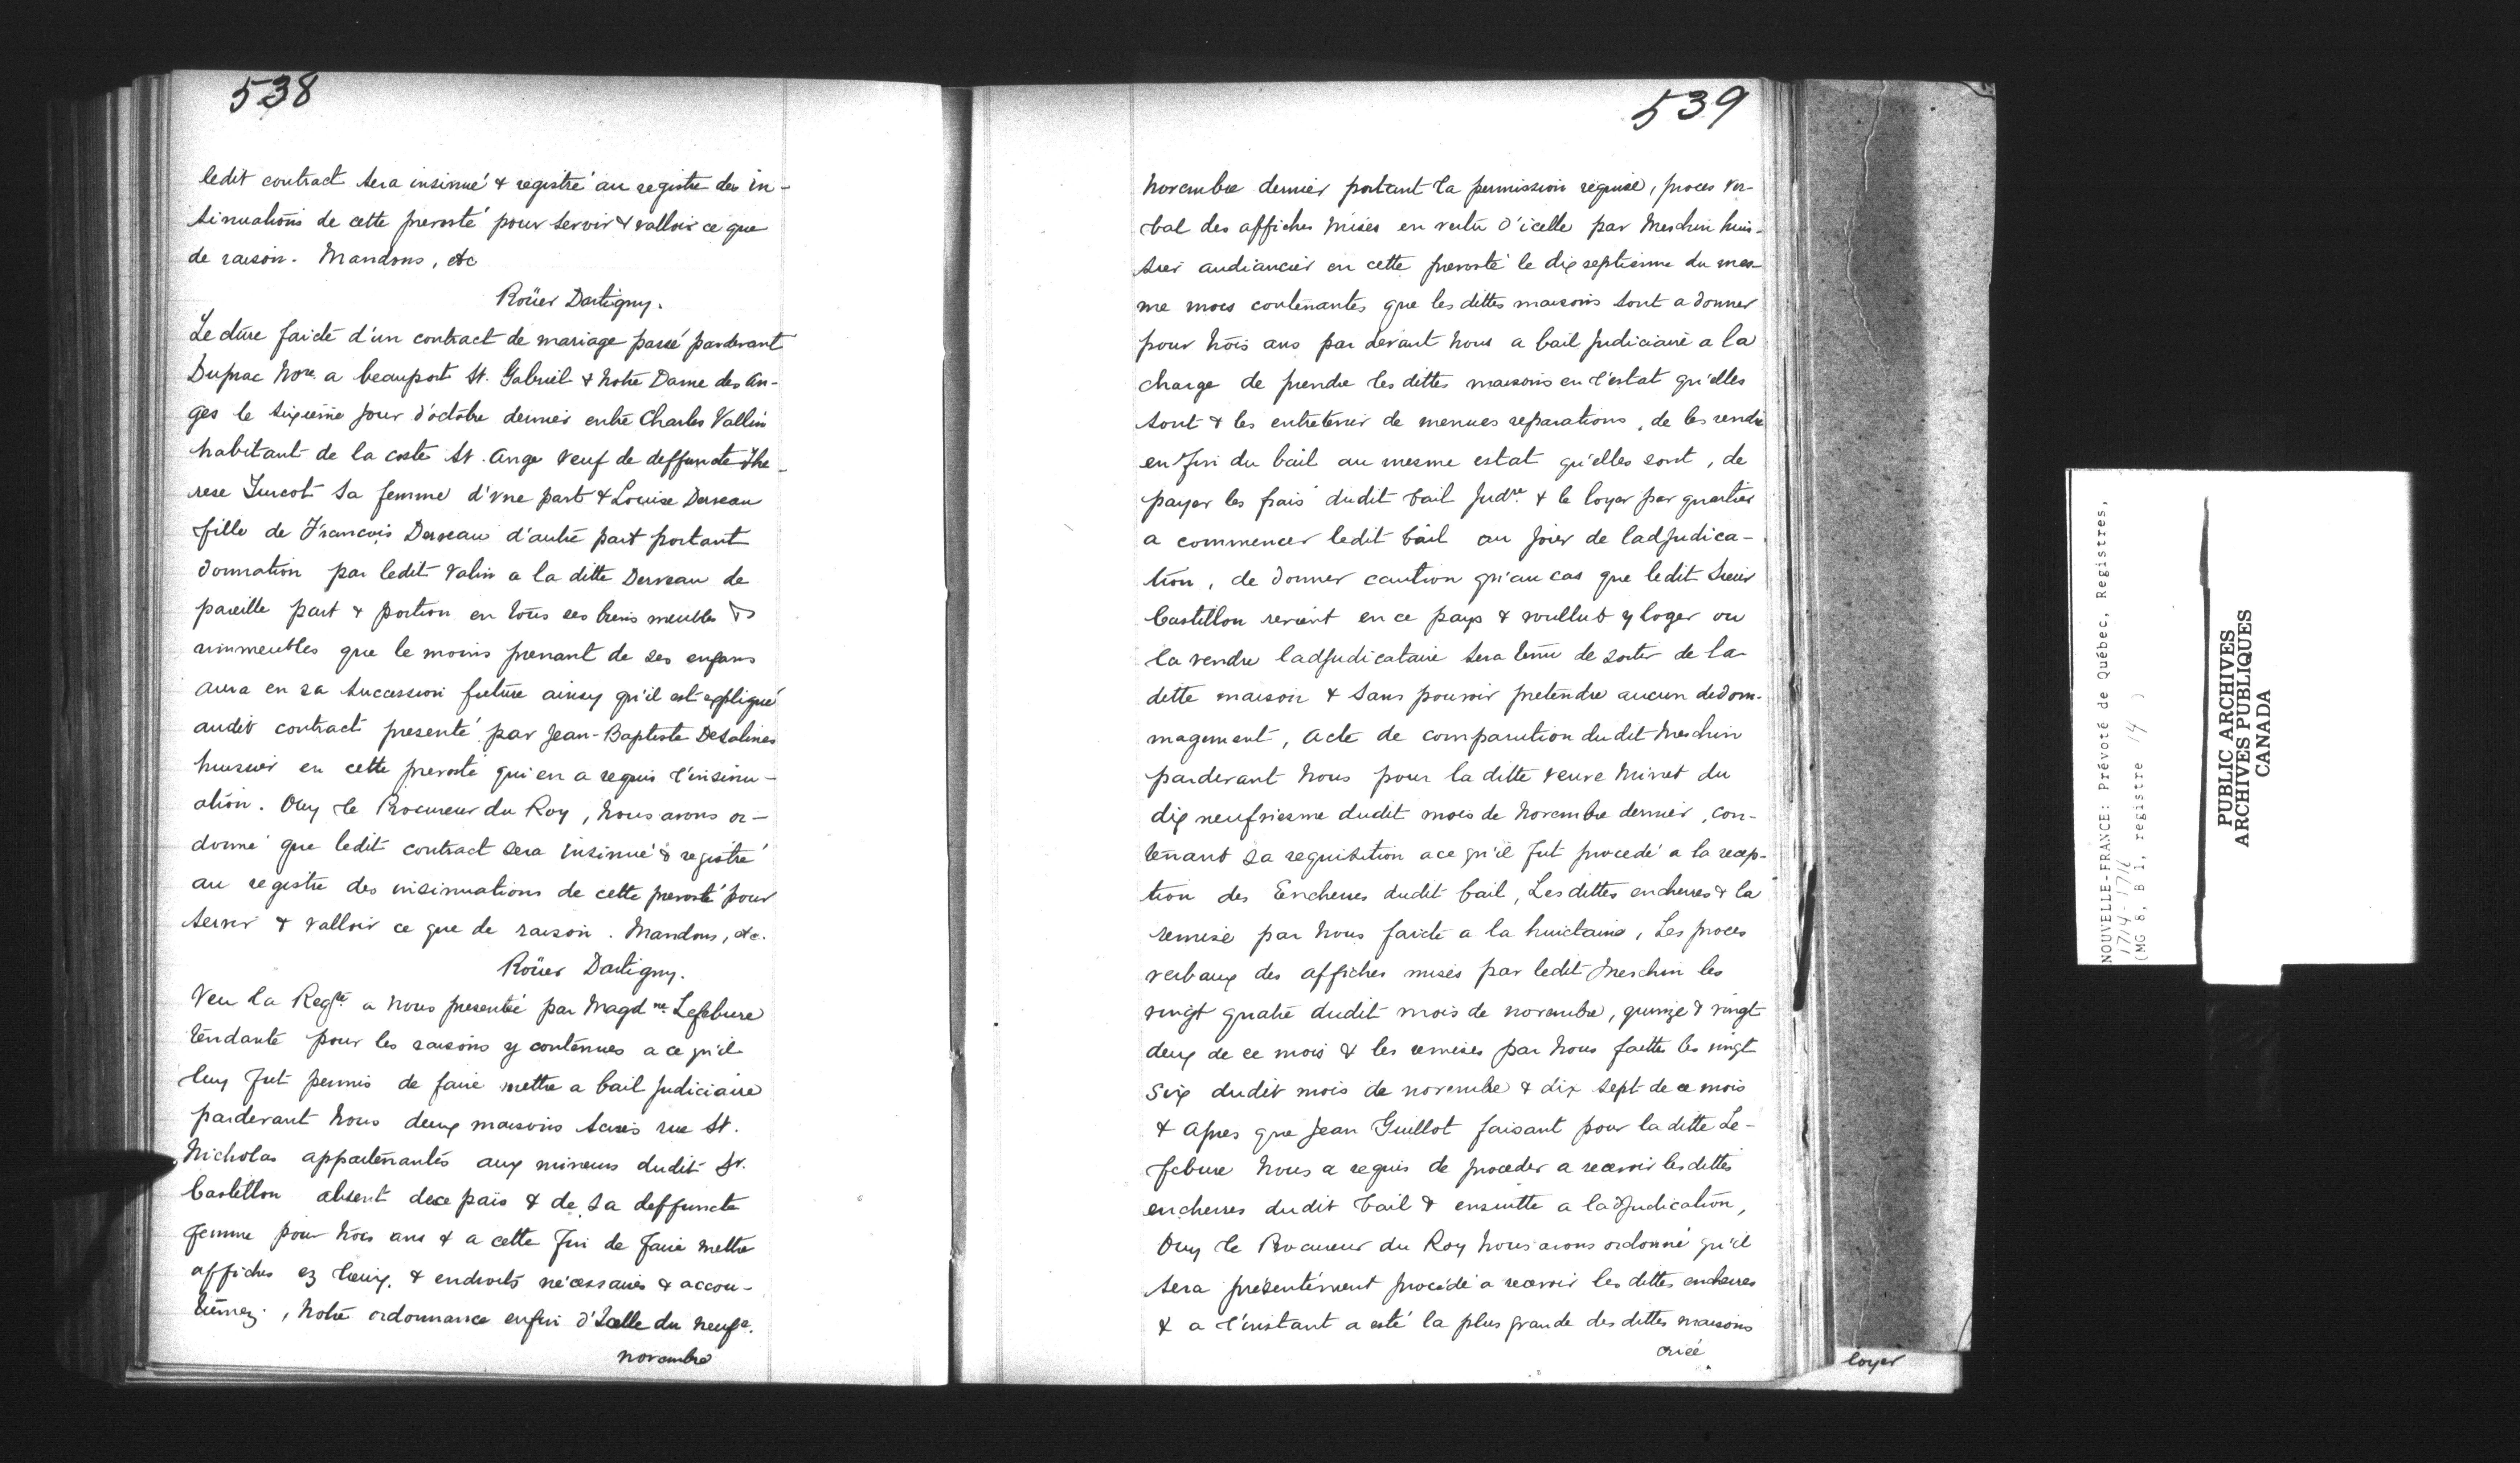 538
ledit contract sera insinué & registré au registre des in-
sinuations de cette prevosté pour servir & valloir ce que
de raison. Mandons, etc
Roüer Dartigny.
Lecture faicte d'un contract de mariage passé pardevant
Duprac Nore. a beauport St. Gabriel & Notre Dame des An-
ges le sixieme jour d'octobre dernier entre Charles Vallin
habitant de la coste St. Ange veuf de deffuncte The-
rese Turcot sa femme d'vne part & Louise Derveau
fille de François Derveau d'autre part portant
donnation par ledit Valin a la ditte Derveau de
pareille part & portion en tous ses biens meubles &
immeubles que le moins prenant de ses enfans
aura en sa succession future ainsy qu'il est expliqué
audit contract presenté par Jean-Baptiste DeSalines
huissier en cette prevosté qui en a requis l'insinu-
ation. Ouy le Procureur du Roy, Nous avons or-
donné que ledit contract sera insinué & registré
au registre des insinuations de cette prevosté pour
servir & valloir ce que de raison. Mandons, etc.
Roüer Dartigny.
Veu la Reqte. a nous presentée par Magdne. Lefebure
tendante pour les raisons y contenues a ce qu'il
luy fut permis de faire mettre a bail judiciaire
pardevant Nous deux maisons scises rue St.
Nicholas appartenantes aux mineurs dudit Sr.
Castillon absent de ce païs & de sa deffuncte
femme pour trois ans & a cette fin de faire mettre
affiches ez lieux & endroits nécessaires & accou-
tumez, Notre ordonnance enfin d'Icelle du neufe.
novembre
539
Novembre dernier portant la permission requise, proces ver-
bal des affiches Mises en vertu d'icelle par Meschin huis-
sier audiancier en cette prevosté le dix septieme du mes-
me mois contenantes que les dittes maisons sont a donner
pour trois ans par devant Nous a bail Judiciaire a la
charge de prendre les dittes maisons en l'estat qu'elles
sont & les entretenir de menues reparations, de les rendre
en fin du bail au mesme estat qu'elles sont, de
payer les frais dudit bail Judre. & le loyer par quartier
a commencer ledit bail au jour de ladjudica-
tion, de donner caution qu'au cas que ledit Sieur
Castillon revient en ce pays & voullut y loger ou
la vendre ladjudicataire sera tenu de sortir de la
ditte maison & sans pouvoir pretendre aucun dedom-
magement, acte de comparution dudit Meschin
pardevant Nous pour la ditte veuve Minet du
dix neufviesme dudit mois de Novembre dernier, con-
tenant sa requisition a ce qu'il fut procedé a la recep-
tion des Encheres dudit bail, Les dittes encheres & la
remise par Nous faicte a la huictaine, Les proces
verbaux des affiches mises par ledit Meschin les
vingt quatre dudit mois de novembre, quinze & vingt
deux de ce mois & les remises par Nous faittes les vingt
Six dudit mois de novembre & dix sept de ce mois
& apres que Jean Guillot faisant pour la ditte Le-
febure Nous a requis de proceder a recevoir les dittes
encheres dudit bail & ensuitte a ladjudication,
Ouy le Procureur du Roy Nous avons ordonné qu'il
sera présentément procédé a recevoir les dittes encheres
& a l'instant a esté la plus grande des dittes maisons
criée
loyer
NOUVELLE-FRANCE: Prévoté de Québec, Registres,
1714-1716
(MG 8, B 1, registre 14 )
PUBLIC ARCHIVES
ARCHIVES PUBLIQUES
CANADA